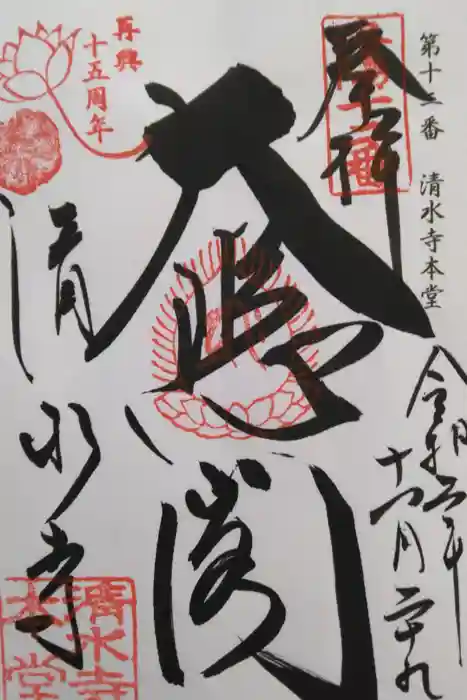 第十二番 清水寺本堂
奉拝
第十二番
令和二年
十一月二十九日
再興
十五周年
大悲閣
清水寺
清水寺
本堂